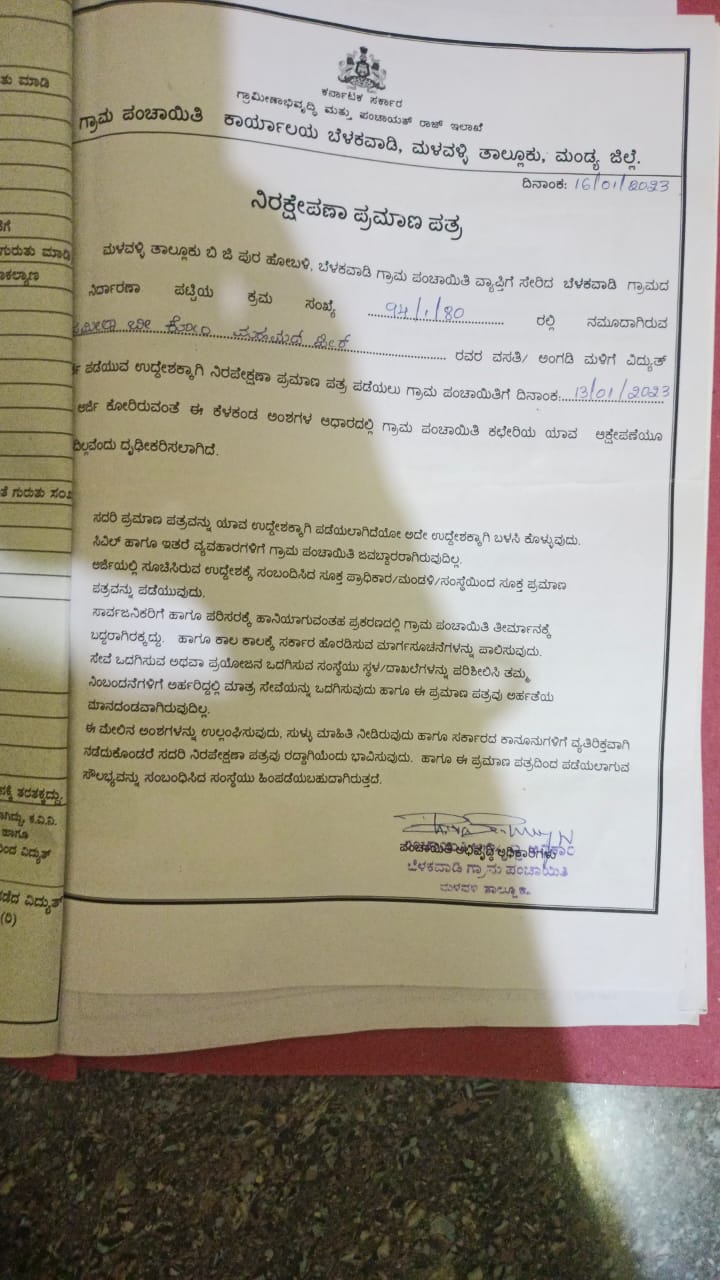 ಕರ್ನಾಟಕ ಸರ್ಕಾರ
ಗ್ರಾಮೀಣಾಭಿವೃದ್ಧಿ ಮತ್ತು ಪಂಚಾಯತ್ ರಾಜ್ ಇಲಾಖೆ
ಗ್ರಾಮ ಪಂಚಾಯಿತಿ ಕಾರ್ಯಾಲಯ ಬೆಳಕವಾಡಿ, ಮಳವಳ್ಳಿ ತಾಲ್ಲೂಕು, ಮಂಡ್ಯ ಜಿಲ್ಲೆ.
ದಿನಾಂಕ: 16/01/2023
ನಿರಕ್ಷೇಪಣಾ ಪ್ರಮಾಣ ಪತ್ರ
ಮಳವಳ್ಳಿ ತಾಲ್ಲೂಕು ಬಿ ಜಿ ಪುರ ಹೋಬಳಿ, ಬೆಳಕವಾಡಿ ಗ್ರಾಮ ಪಂಚಾಯಿತಿ ವ್ಯಾಪ್ತಿಗೆ ಸೇರಿದ ಬೆಳಕವಾಡಿ ಗ್ರಾಮದ
ನಿರ್ದಾರಣಾ ಪಟ್ಟಿಯ ಕ್ರಮ ಸಂಖ್ಯೆ 94/1/80 ರಲ್ಲಿ ನಮೂದಾಗಿರುವ
ರವರ ವಸತಿ/ ಅಂಗಡಿ ಮಳಿಗೆ ವಿದ್ಯುತ್
ಪಡೆಯುವ ಉದ್ದೇಶಕ್ಕಾಗಿ ನಿರಪೇಕ್ಷಣಾ ಪ್ರಮಾಣ ಪತ್ರ ಪಡೆಯಲು ಗ್ರಾಮ ಪಂಚಾಯಿತಿಗೆ ದಿನಾಂಕ: 13/01/2023
ಅರ್ಜಿ ಕೋರಿರುವಂತೆ ಈ ಕೆಳಕಂಡ ಅಂಶಗಳ ಆಧಾರದಲ್ಲಿ ಗ್ರಾಮ ಪಂಚಾಯಿತಿ ಕಛೇರಿಯ ಯಾವ ಆಕ್ಷೇಪಣೆಯೂ
ದಿಲ್ಲವೆಂದು ದೃಢೀಕರಿಸಲಾಗಿದೆ.
ಸದರಿ ಪ್ರಮಾಣ ಪತ್ರವನ್ನು ಯಾವ ಉದ್ದೇಶಕ್ಕಾಗಿ ಪಡೆಯಲಾಗಿದೆಯೋ ಅದೇ ಉದ್ದೇಶಕ್ಕಾಗಿ ಬಳಸಿ ಕೊಳ್ಳುವುದು.
ಸಿವಿಲ್ ಹಾಗೂ ಇತರೆ ವ್ಯವಹಾರಗಳಿಗೆ ಗ್ರಾಮ ಪಂಚಾಯಿತಿ ಜವಬ್ದಾರರಾಗಿರುವುದಿಲ್ಲ.
ಅರ್ಜಿಯಲ್ಲಿ ಸೂಚಿಸಿರುವ ಉದ್ದೇಶಕ್ಕೆ ಸಂಬಂದಿಸಿದ ಸೂಕ್ತ ಪ್ರಾಧಿಕಾರ/ಮಂಡಳಿ/ಸಂಸ್ಥೆಯಿಂದ ಸೂಕ್ತ ಪ್ರಮಾಣ
ಪತ್ರವನ್ನು ಪಡೆಯುವುದು.
ಸಾರ್ವಜನಿಕರಿಗೆ ಹಾಗೂ ಪರಿಸರಕ್ಕೆ ಹಾನಿಯಾಗುವಂತಹ ಪ್ರಕರಣದಲ್ಲಿ ಗ್ರಾಮ ಪಂಚಾಯಿತಿ ತೀರ್ಮಾನಕ್ಕೆ
ಬದ್ದರಾಗಿರಕ್ಕದ್ದು. ಹಾಗೂ ಕಾಲ ಕಾಲಕ್ಕೆ ಸರ್ಕಾರ ಹೊರಡಿಸುವ ಮಾರ್ಗಸೂಚನೆಗಳನ್ನು ಪಾಲಿಸುವುದು.
ಸೇವೆ ಒದಗಿಸುವ ಅಥವಾ ಪ್ರಯೋಜನ ಒದಗಿಸುವ ಸಂಸ್ಥೆಯು ಸ್ಥಳ/ದಾಖಲೆಗಳನ್ನು ಪರಿಶೀಲಿಸಿ ತಮ್ಮ
ನಿಂಬಂದನೆಗಳಿಗೆ ಅರ್ಹರಿದ್ದಲ್ಲಿ ಮಾತ್ರ ಸೇವೆಯನ್ನು ಒದಗಿಸುವುದು ಹಾಗೂ ಈ ಪ್ರಮಾಣ ಪತ್ರವು ಅರ್ಹತೆಯ
ಮಾನದಂಡವಾಗಿರುವುದಿಲ್ಲ.
ಈ ಮೇಲಿನ ಅಂಶಗಳನ್ನು ಉಲ್ಲಂಘಿಸುವುದು, ಸುಳ್ಳು ಮಾಹಿತಿ ನೀಡಿರುವುದು ಹಾಗೂ ಸರ್ಕಾರದ ಕಾನೂನುಗಳಿಗೆ ವ್ಯತಿರಿಕ್ತವಾಗಿ
ನಡೆದುಕೊಂಡರೆ ಸದರಿ ನಿರಪೇಕ್ಷಣಾ ಪತ್ರವು ರದ್ದಾಗಿಯೆಂದು ಭಾವಿಸುವುದು. ಹಾಗೂ ಈ ಪ್ರಮಾಣ ಪತ್ರದಿಂದ ಪಡೆಯಲಾಗುವ
ಸೌಲಭ್ಯವನ್ನು ಸಂಬಂಧಿಸಿದ ಸಂಸ್ಥೆಯು ಹಿಂಪಡೆಯಬಹುದಾಗಿರುತ್ತದೆ.
ಪಂಚಾಯಿತಿ ಅಭಿವೃದ್ಧಿ ಅಧಿಕಾರಿಗಳು
ಬೆಳಕವಾಡಿ ಗ್ರಾಮ ಪಂಚಾಯಿತಿ
ಮಳವಳ್ಳಿ ತಾಲ್ಲೂಕು.